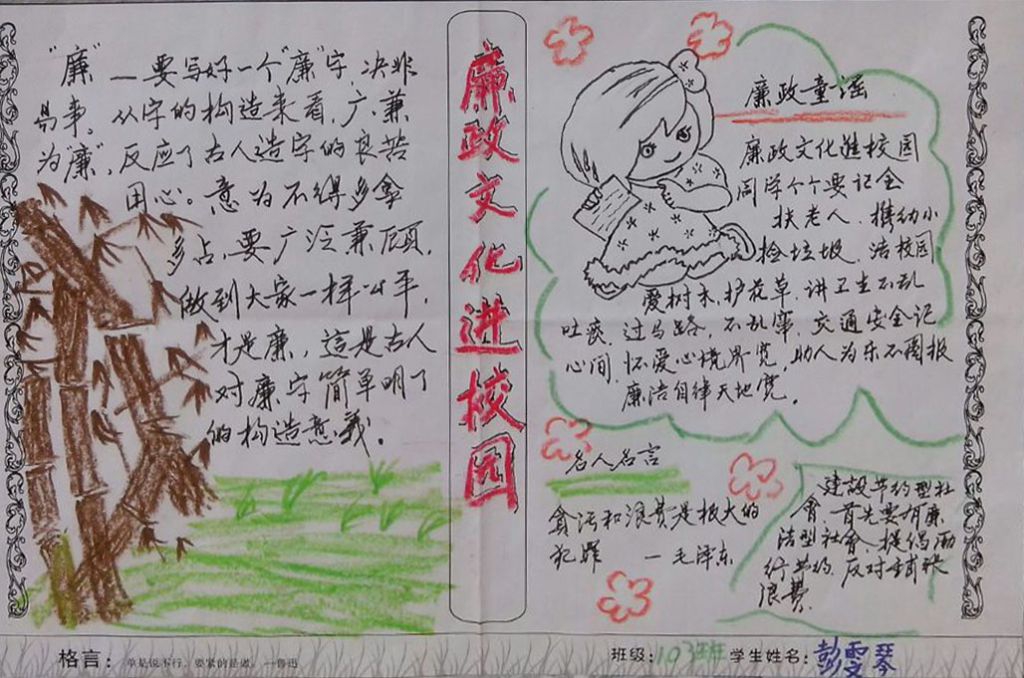 “廉”—要写好一个“廉”字,决非
易事。从字的构造来看,广、兼
为“廉”,反应了古人造字的良苦
用心。意为不得多拿
多占,要广泛兼顾,
做到大家一样公平,
才是廉,這是古人
对廉字简单明了
的构造意義。
廉政文化进校园
廉政童谣
廉政文化進校园
同学个个要记全
扶老人、携幼小
捡垃圾、洁校园
爱树木,护花草,讲卫生不乱
吐痰,过马路,不乱窜,交通安全记
心间,怀爱心境界宽,助人为乐不图报
廉洁自律天地宽。
名人名言
貪污和浪费是极大的
犯罪 —毛泽东
建設节约型社
會首先要有廉
洁型社會、提倡
行节约,反对铺张
浪费.
格言:单是说不行,要紧的是做。—鲁迅
班级:103班 学生姓名:彭雯琴